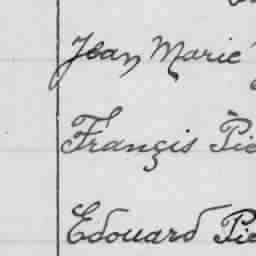 Jean Marie
Françis Pie
Edouard Pie